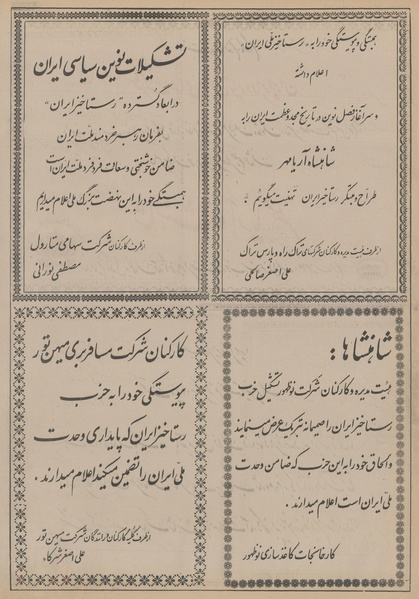 همبستگی و پیوستگی خود را به «رستاخیز ملی ایران»
اعلام داشته
و سرآغاز فصل نوین در تاریخ مجد و عظمت ایران را به
شاهنشاه آریامهر
طراح و مبتکر رستاخیز ایران تهنیت میگوئیم :
از طرف هیئت مدیره و کارکنان شرکتهای تراک راه و پارس تراک
علی اصغر صالحی
تشکیلات نوین سیاسی ایران
در ابعاد گسترده «رستاخیز ایران»
بفرمان رهبر خردمند ملت ایران
ضامن خوشبختی و سعادت فرد فرد ملت ایران است
همبستگی خود را به این نهضت بزرگ ملی اعلام میداریم
از طرف کارکنان شرکت سهامی متارول
مصطفی نورانی
شاهنشاها :
هیئت مدیره و کارکنان شرکت نوظهور تشکیل حزب
رستاخیز ایران را صمیمانه تبریک عرض مینمایند
و الحاق خود را به این حزب که ضامن وحدت
ملی ایران است اعلام میدارند .
کارخانجات کاغذسازی نوظهور
کارکنان شرکت مسافربری میهن تور
پیوستگی خود را به حزب
رستاخیز ایران که پایداری وحدت
ملی ایران را تضمین میکند اعلام میدارند .
از طرف کلیه کارکنان و رانندگان شرکت میهن تور
علی اصغر شرکاء